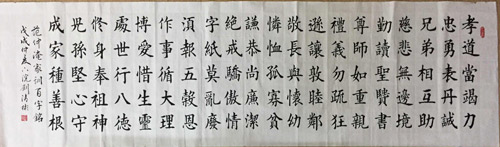 孝道當竭力
忠勇表丹誠
兄弟相互助
慈悲無邊境
勤讀聖賢書
尊師如重親
禮義勿疏狂
遜讓敦睦鄰
敬長與懷幼
憐恤孤寡貧
謙恭尚廉潔
絕戒驕傲情
字紙莫亂廢
須報五穀恩
作事循天理
博愛惜生靈
處世行八德
修身奉祖神
兒孫堅心守
成家種善根
范仲淹家訓百字銘
戊戌